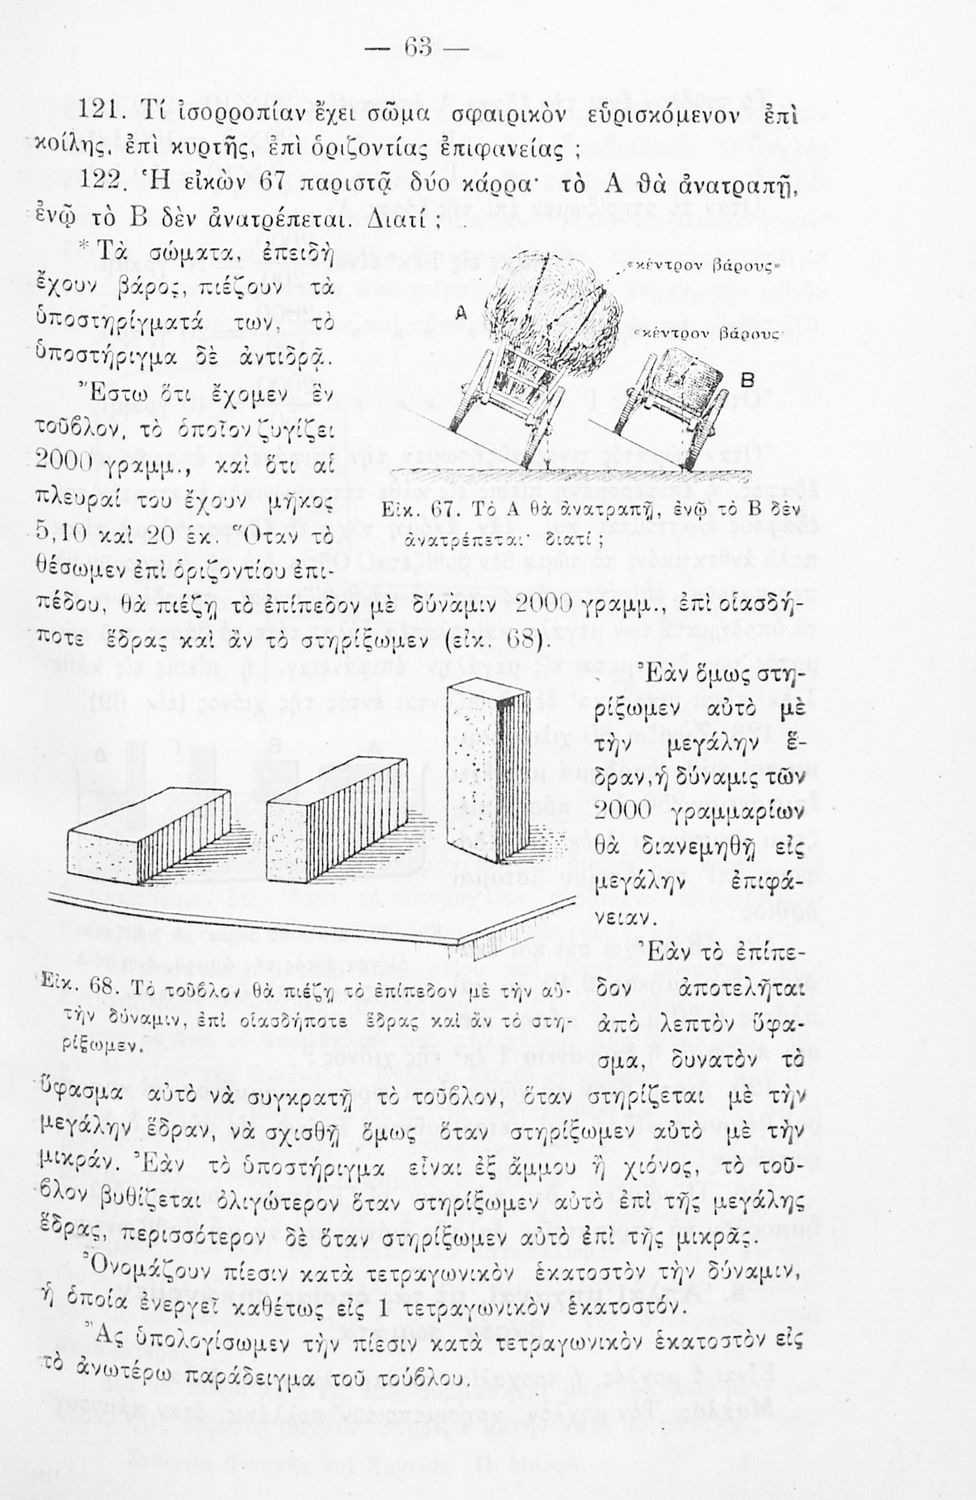 — 63 —
121. Τί ἰσορροπίαν ἔχει σῶμα σφαιρικὸν εὑρισκόμενον ἐπὶ
κοίλης, ἐπὶ κυρτῆς, ἐπὶ ὁριζοντίας ἐπιφανείας ;
122. Ἡ εἰκὼν 67 παριστᾷ δύο κάρρα· τὸ Α θὰ ἀνατραπῇ,
ἐνῷ τὸ Β δὲν ἀνατρέπεται. Διατί ;
* Τὰ σώματα, ἐπειδὴ
ἔχουν βάρος, πιέζουν τὰ
ὑποστηρίγματά των, τὸ
ὑποστήριγμα δὲ ἀντιδρᾷ.
Ἔστω ὅτι ἔχομεν ἓν
τοῦβλον, τὸ ὁποῖον ζυγίζει
2000 γραμμ., καὶ ὅτι αἱ
πλευραί του ἔχουν μῆκος
5,10 καὶ 20 ἑκ. Ὅταν τὸ
θέσωμεν ἐπὶ ὁριζοντίου ἐπι-
πέδου, θὰ πιέζῃ τὸ ἐπίπεδον μὲ δύναμιν 2000 γραμμ., ἐπὶ οἱασδή-
ποτε ἕδρας καὶ ἂν τὸ στηρίξωμεν (εἰκ. 68).
«κέντρον βάρους»
Α
«κέντρον βάρους
Β
Εἰκ. 67. Τὸ Α θὰ ἀνατραπῇ, ἐνῷ τὸ Β δὲν
ἀνατρέπεται· διατί ;
Ἐὰν ὅμως στη-
ρίξωμεν αὐτὸ μὲ
τὴν μεγάλην ἕ-
δραν, ἡ δύναμις τῶν
2000 γραμμαρίων
θὰ διανεμηθῇ εἰς
μεγάλην ἐπιφά-
νειαν.
Ἐὰν τὸ ἐπίπε-
δον ἀποτελῆται
ἀπὸ λεπτὸν ὕφα-
σμα, δυνατὸν τὸ
Εἰκ. 68. Τὸ τοῦβλον θὰ πιέζῃ τὸ ἐπίπεδον μὲ τὴν αὐ-
τὴν δύναμιν, ἐπὶ οἱασδήποτε ἕδρας καὶ ἂν τὸ στη-
ρίξωμεν.
ὕφασμα αὐτὸ νὰ συγκρατῇ τὸ τοῦβλον, ὅταν στηρίζεται μὲ τὴν
μεγάλην ἕδραν, νὰ σχισθῇ ὅμως ὅταν στηρίξωμεν αὐτὸ μὲ τὴν
μικράν. Ἐὰν τὸ ὑποστήριγμα εἶναι ἐξ ἄμμου ἢ χιόνος, τὸ τοῦ-
βλον βυθίζεται ὀλιγώτερον ὅταν στηρίξωμεν αὐτὸ ἐπὶ τῆς μεγάλης
ἕδρας, περισσότερον δὲ ὅταν στηρίξωμεν αὐτὸ ἐπὶ τῆς μικρᾶς.
Ὀνομάζουν πίεσιν κατὰ τετραγωνικὸν ἑκατοστὸν τὴν δύναμιν,
ἡ ὁποία ἐνεργεῖ καθέτως εἰς 1 τετραγωνικὸν ἑκατοστόν.
Ἂς ὑπολογίσωμεν τὴν πίεσιν κατὰ τετραγωνικὸν ἑκατοστὸν εἰς
τὸ ἀνωτέρω παράδειγμα τοῦ τούβλου.